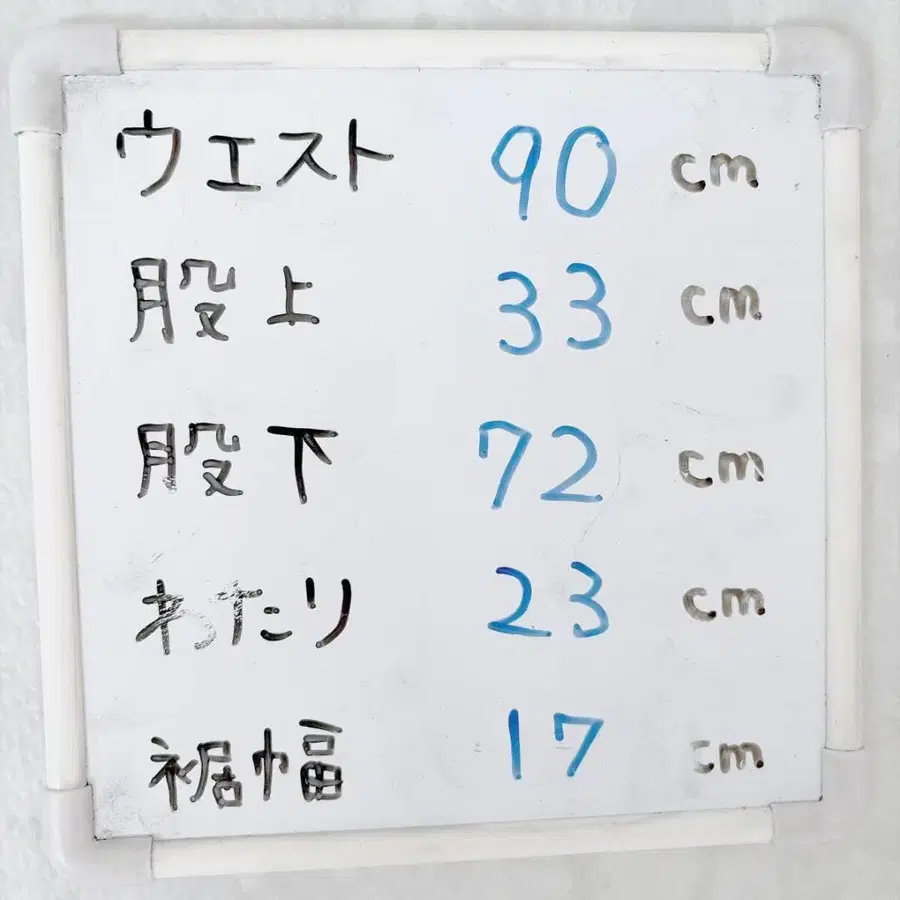 ウエスト 90 cm
股上 33 cm
股下 72 cm
わたり 23 cm
裾幅 17 cm